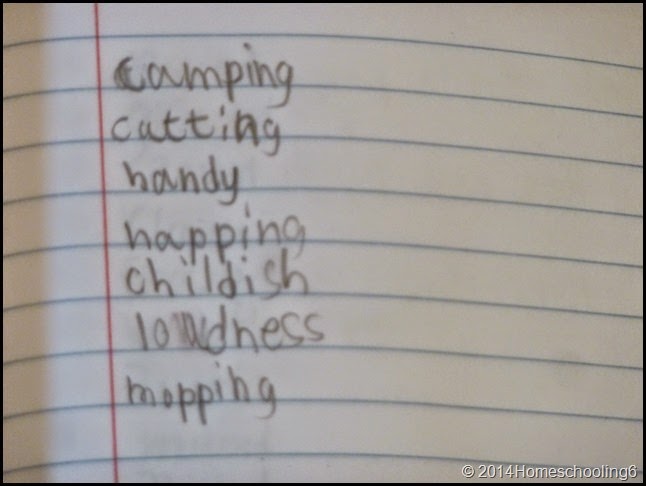 camping
cutting
handy
napping
childish
loudness
mopping
© 2014Homeschooling6